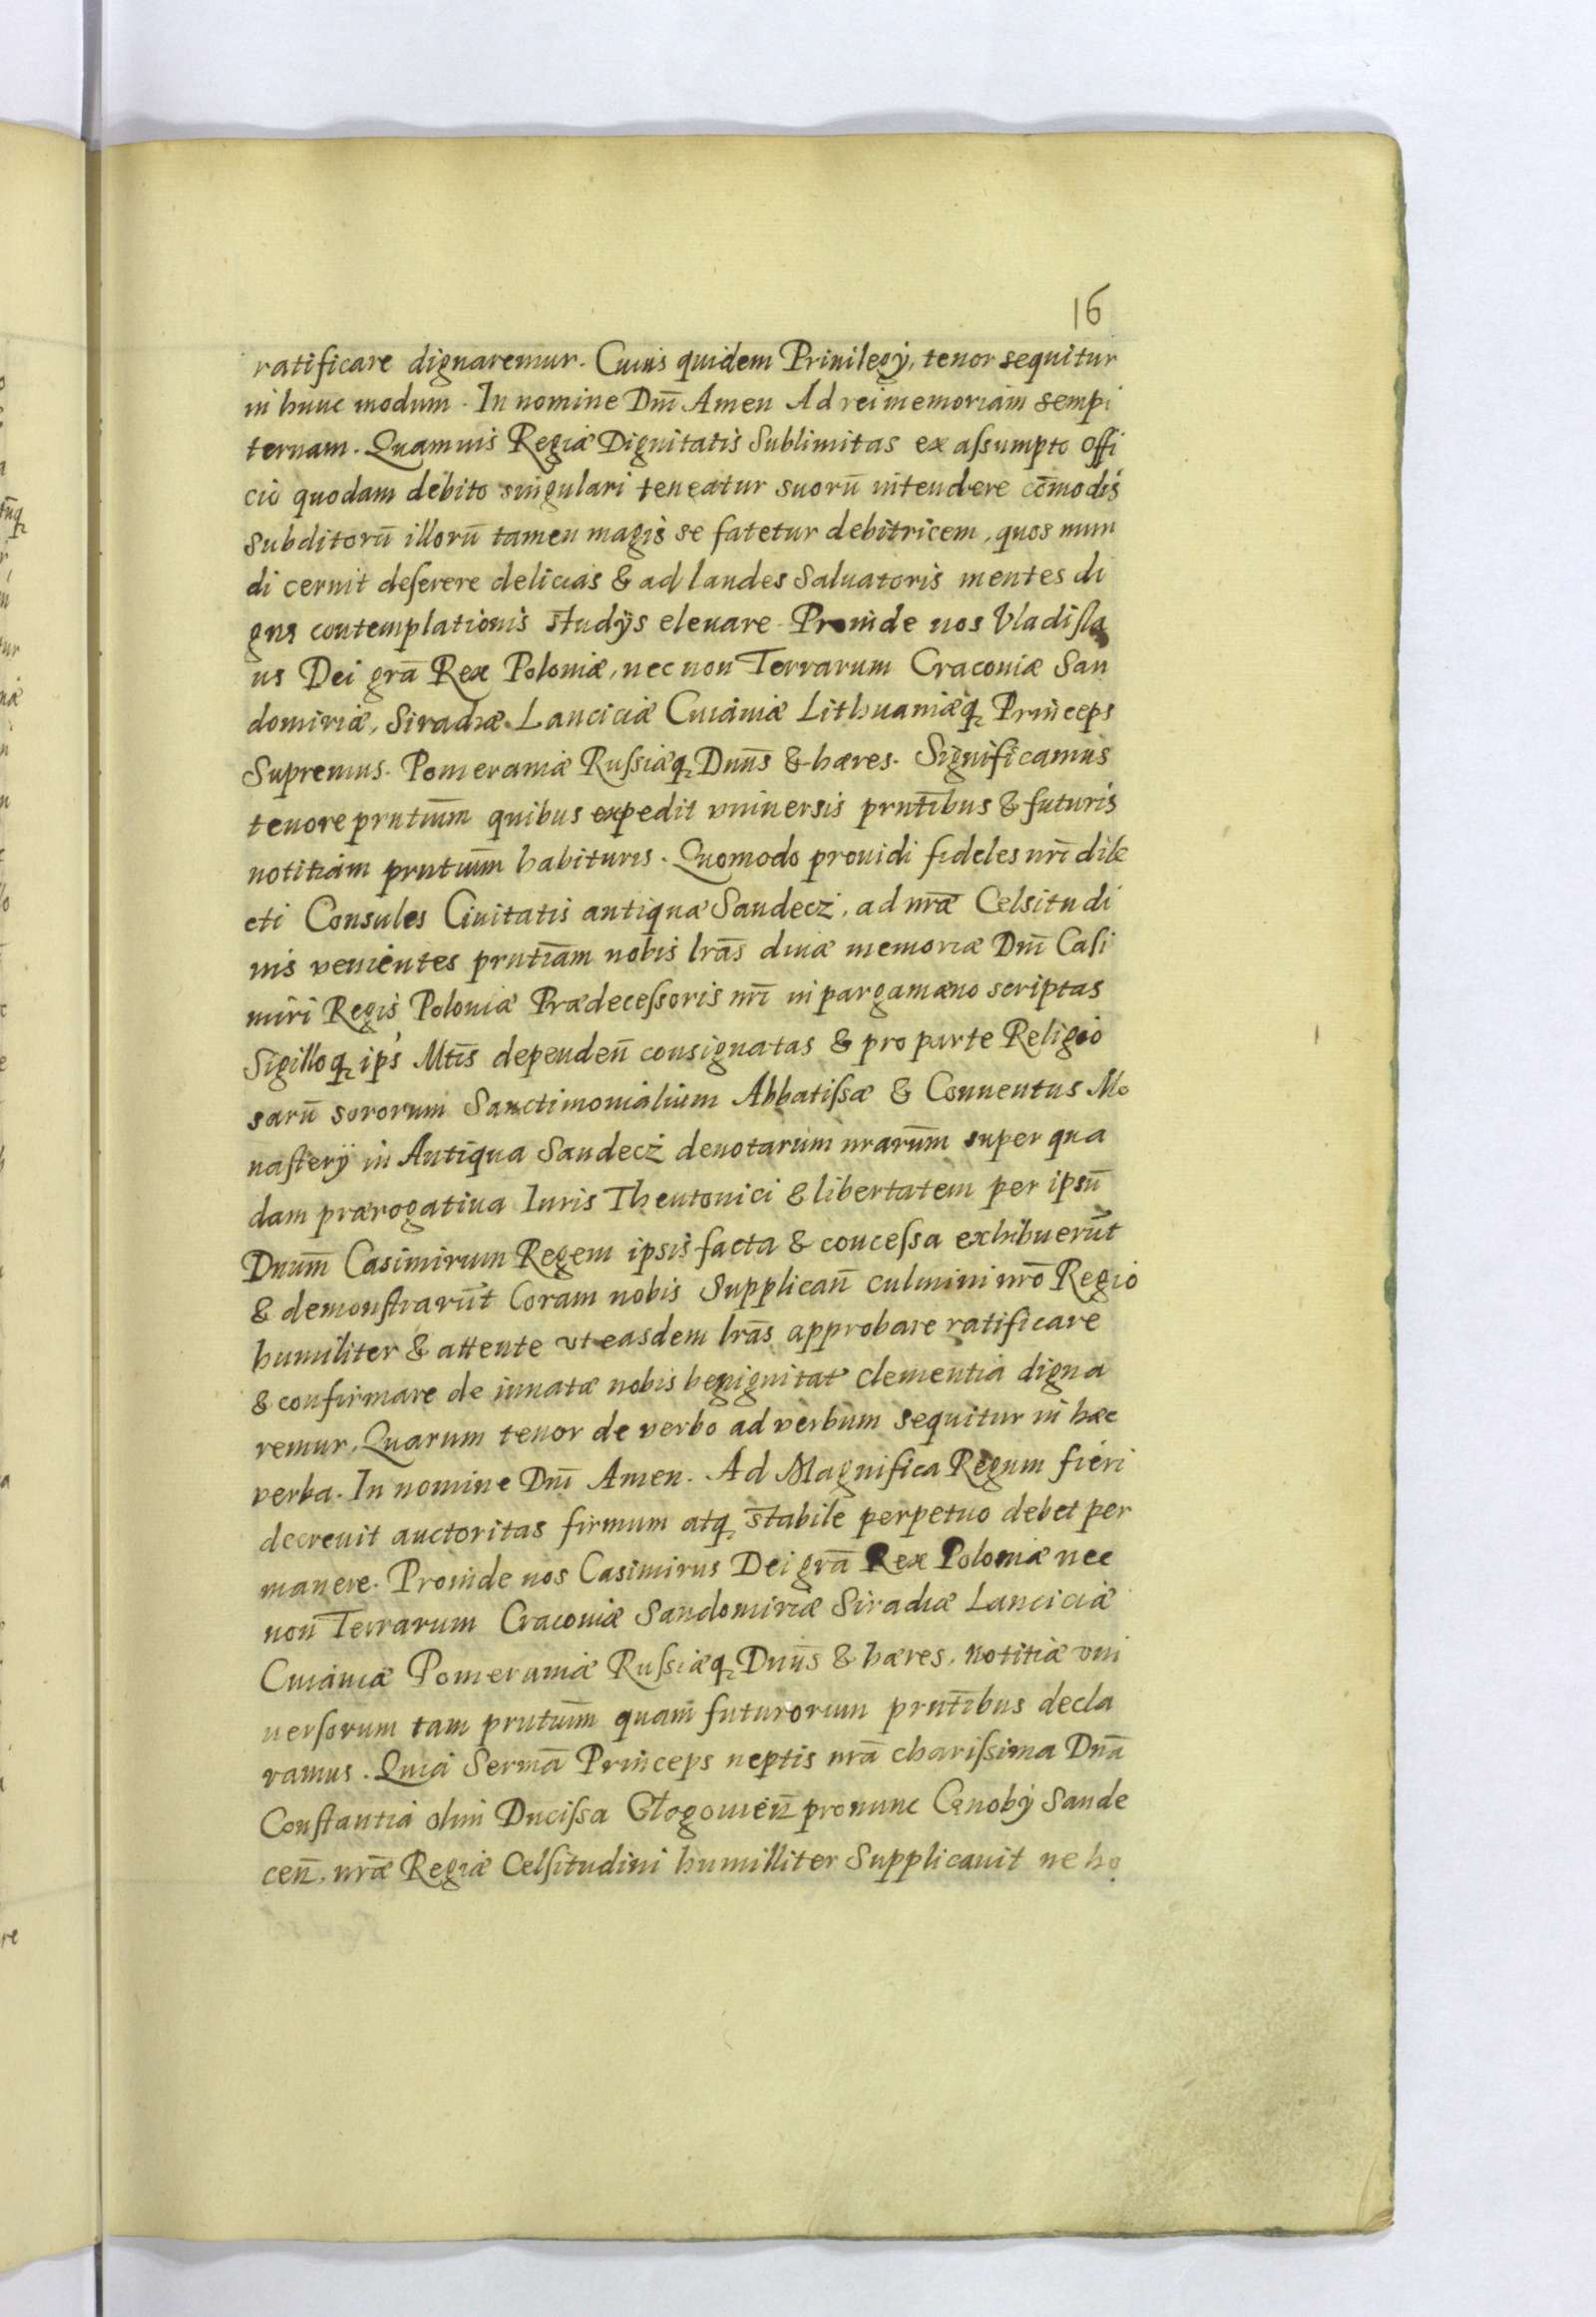 16
ratificare dignaremur. Cuius quidem Priuilegÿ, tenor sequitur
in hunc modum. In nomine Dnī Amen Ad rei memoriam sempi
ternam. Quamuis Regiæ Dignitatis Sublimitas ex aſsumpto offi
cio quodam debito singulari teneatur suorū intendere cōmodis
Subditorū illorū tamen magis se fatetur debitricem, quos mun
di cernit deſerere delicias & ad laudes Saluatoris mentes di
gnę contemplationis studÿs eleuare. Proinde nos Vladiſla
us Dei grā Rex Poloniæ, nec non Terrarum Cracoviæ San
domiriæ, Siradiæ Lanciciæ Cuiauiæ Lithuaniæq₃ Princeps
Supremus. Pomeraniæ Ruſsiæq₃ Dnūs & hæres. Significamus
tenore prntiūm quibus expedit vniuersis prntībus & futuris
notitiam prntiūm habituris. Quomodo prouidi fideles nrī dile
cti Consules Ciuitatis antiquæ Sandecż, ad nrǣ Celsitudi
nis venientes prntīam nobis lrās diuæ memoriæ Dnī Caſi
miri Regis Poloniæ Prædeceſsoris nrī in pargamæno scriptas
Sigilloq₃ ips' Mtīs dependen̄ consignatas & pro parte Religio
sarū sororum Sanctimonialium Abbatiſsæ & Conuentus Mo
naſterÿ in Antiqua Sandecż deuotarum nrarūm super qua
dam prærogatiua Iuris Theutonici & libertatem per ipsū
Dnūm Casimirum Regem ipsis facta & conceſsa exhibuerūt
& demonſtrarūt Coram nobis Supplican̄ culmini nrō Regio
humiliter & attente vt easdem lrās approbare ratificare
& confirmare de innatæ nobis benignitat clementia digna
remur. Quarum tenor de verbo ad verbum sequitur in hæc
verba. In nomine Dnī Amen. Ad Magnifica Regum fieri
decreuit auctoritas firmum atq₃ stabile perpetuo debet per
manere. Proinde nos Casimirus Dei grā Rex Poloniæ nec
non Terrarum Cracoviæ Sandomiriæ Siradiæ Lanciciæ
Cuiauiæ Pomeraniæ Ruſsiæq₃ Dnūs & hæres, notitiæ vni
uerſorum tam prntiūm quam futurorum prntībus decla
ramus. Quia Sermā Princeps neptis nrā chariſsima Dnā
Conſtantia olim Duciſsa Głogouien̄ pro nunc Cęnobÿ Sande
cen̄, nrǣ Regiæ Celſitudini humilliter Supplicauit ne ho